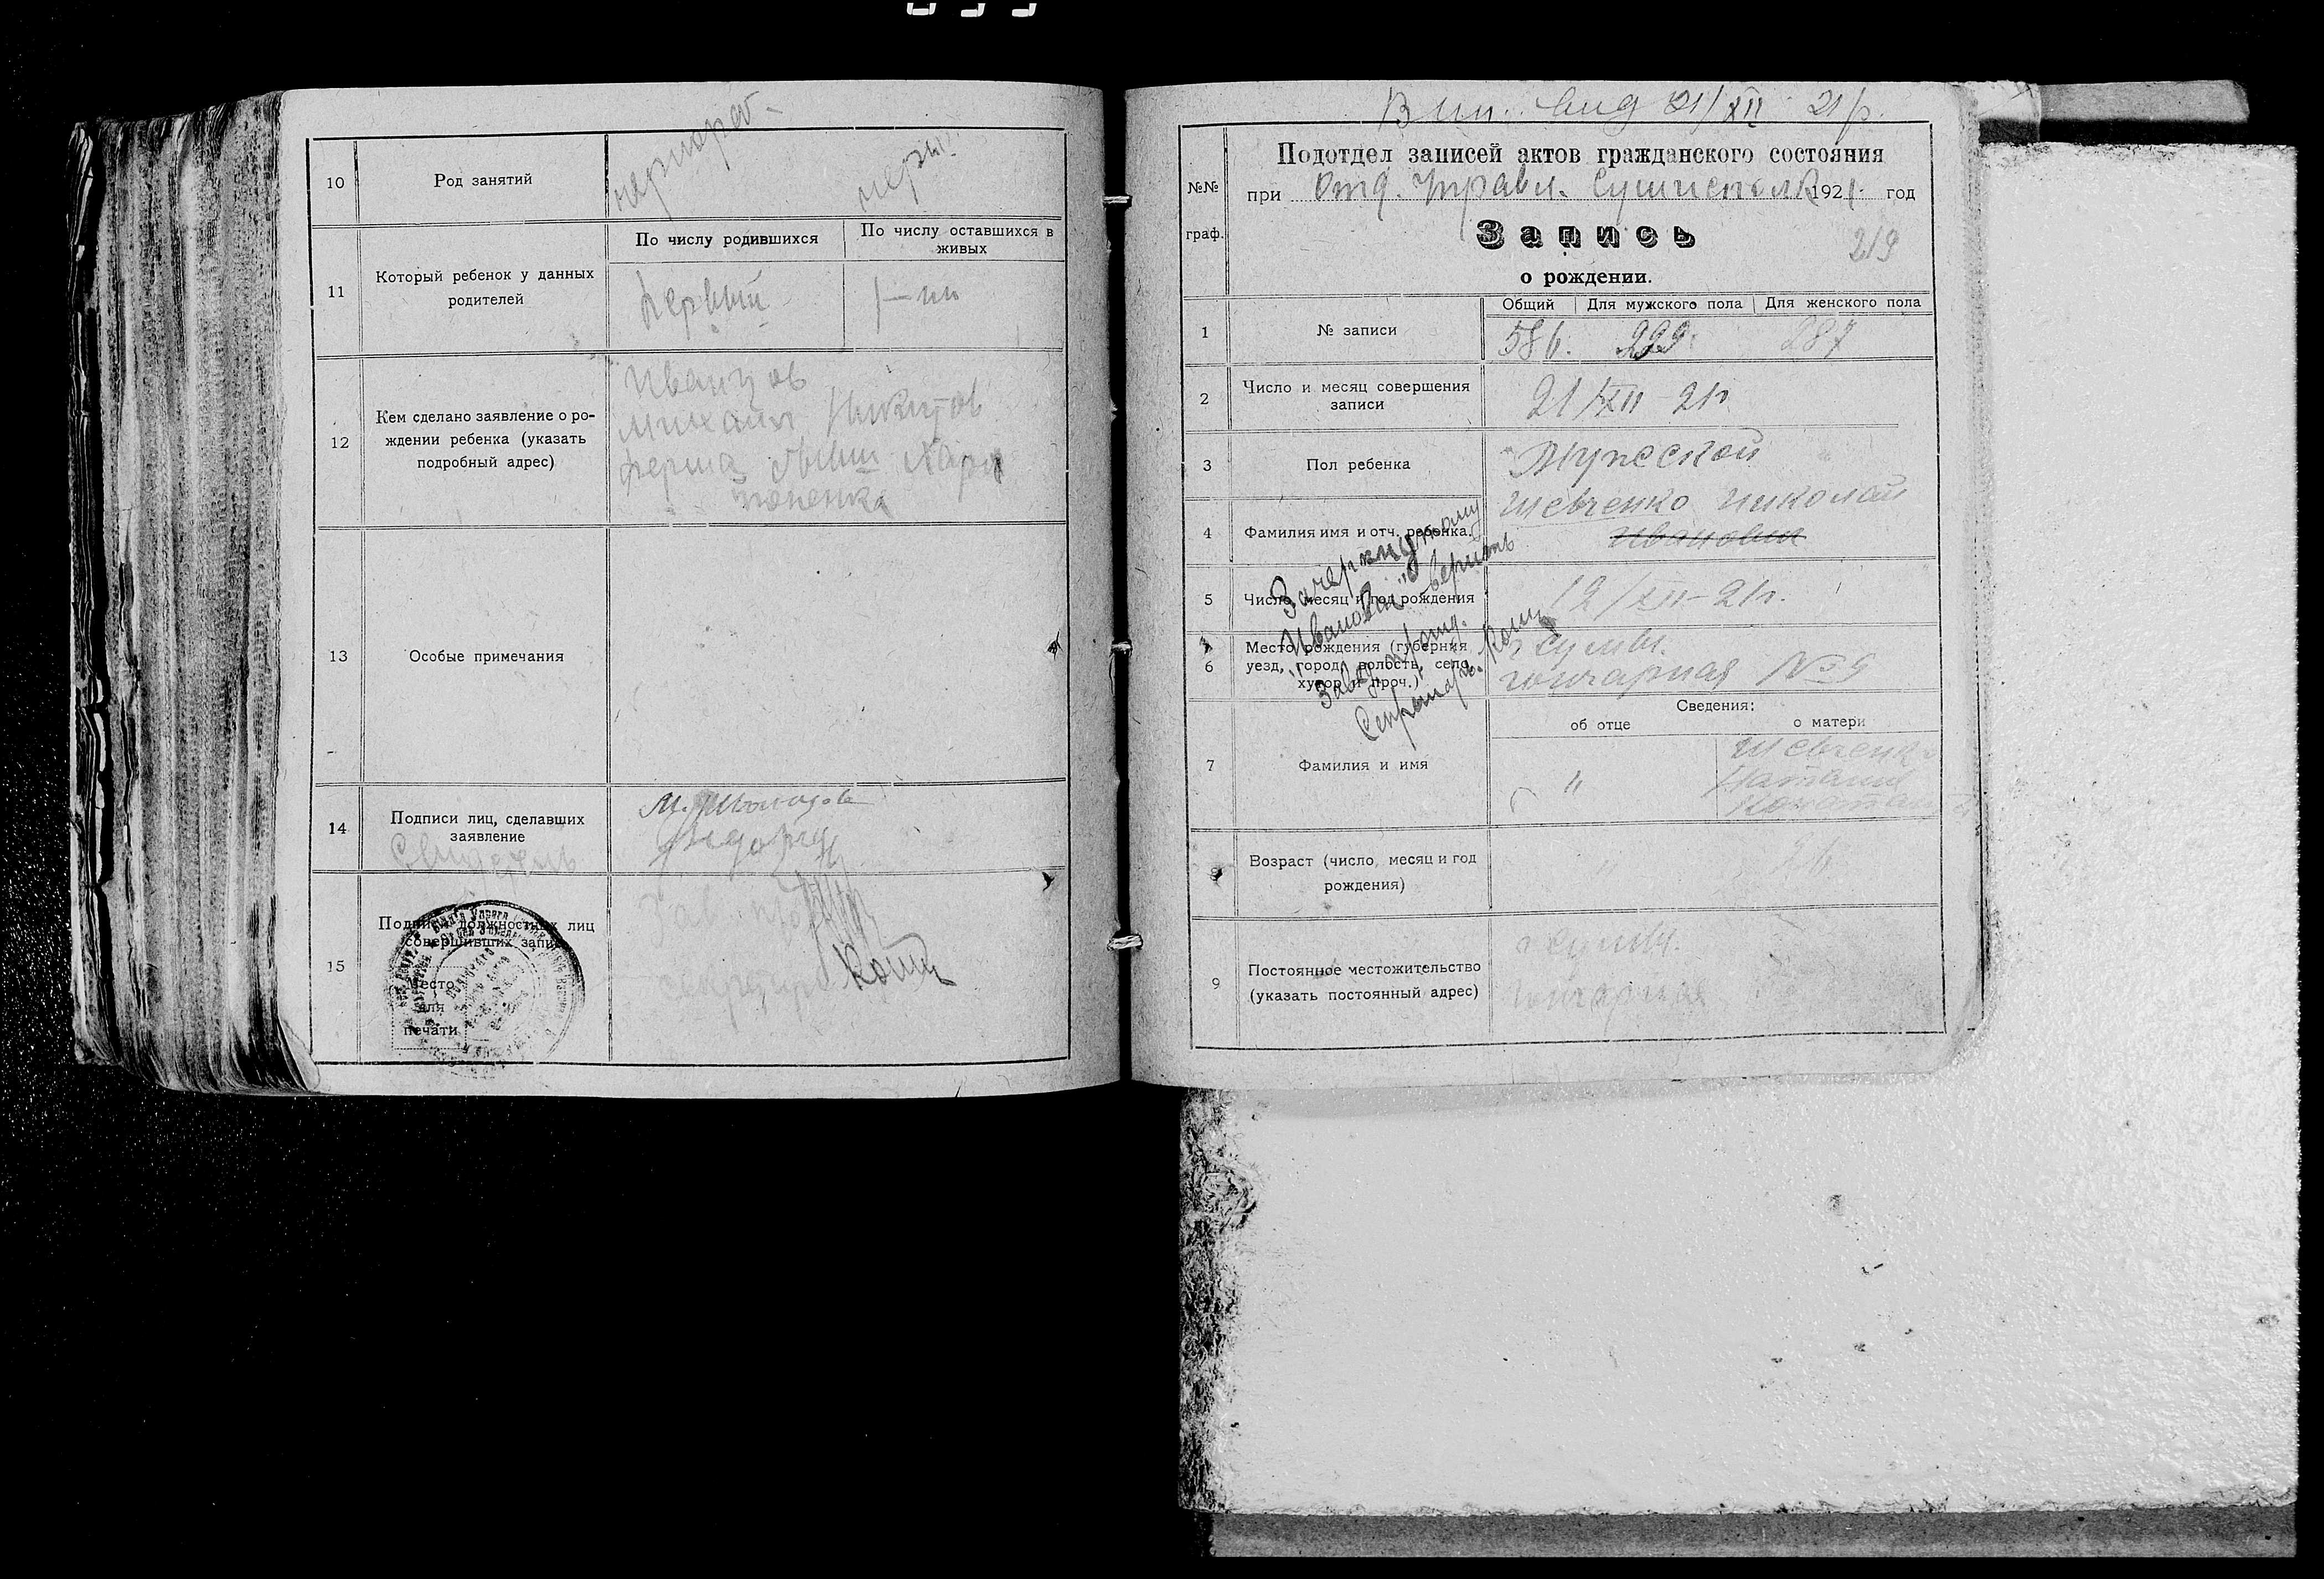 10
Род занятий
чернораб-
черн.
11
Который ребенок у данных
родителей
По числу родившихся
По числу оставшихся в
живых
Первый
1-ый
12
Кем сделано заявление о ро-
ждении ребенка (указать
подробный адрес)
Иванцов
Михаил Никитов
ферма бывш Хари
тоненка
13
Особые примечания
14
Подписи лиц, сделавших
заявление
15
Подписи должностных лиц
совершивших запись
Место
для
печати
Завед
секретарь
Вып. вид 21/XII 21г.
№№
граф.
Подотдел записей актов гражданского состояния
при Отд. Управл. Сумисполк 1921 год
Запись
о рождении.
219
1
№ записи
Общий
Для мужского пола
Для женского пола
586. 299. 287
2
Число и месяц совершения
записи
21/XII-21г
3
Пол ребенка
Мужеской
4
Фамилия имя и отч. ребенка.
Шевченко Николай
Иванович
5
Число, месяц и год рождения
12/XII-21г.
6
Место рождения (губерния
уезд, город, волость, село,
хутор и проч.)
г Сумы.
Гончарная № 5
Зачеркнутому
"Иванович" верить
Завед. п/отд.
Секретарь
7
Фамилия и имя
Сведения:
об отце
о матери
"
Шевченко
Наталия
8
Возраст (число, месяц и год
рождения)
"
9
Постоянное местожительство
(указать постоянный адрес)
г Сумы.
Гончарная